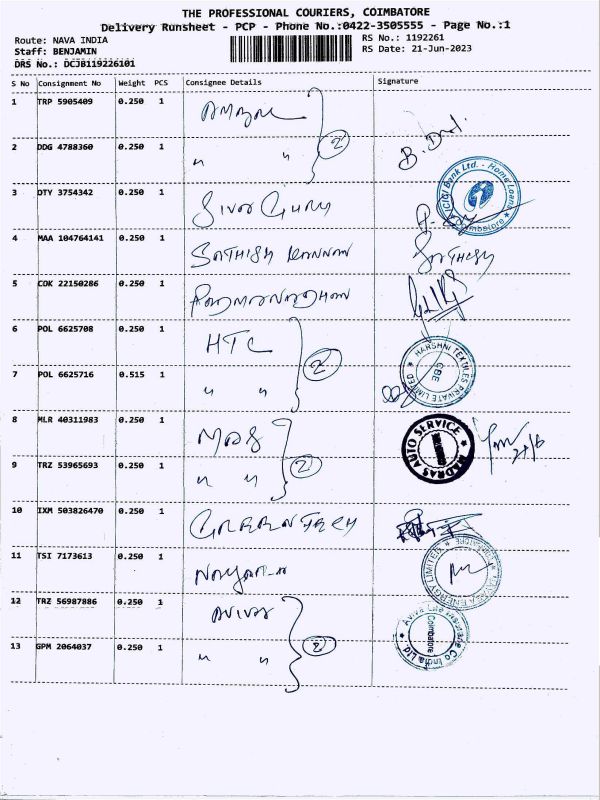 THE PROFESSIONAL COURIERS, COIMBATORE
Delivery Runsheet - PCP - Phone No.:0422-3505555 - Page No.:1
Route: NAVA INDIA RS No.: 1192261
Staff: BENJAMIN RS Date: 21-Jun-2023
DRS No.: DCJB119226101
S No Consignment No Weight PCS Consignee Details Signature
1 TRP 5905409 0.250 1
2 DDG 4788360 0.250 1 " " 2
3 DTY 3754342 0.250 1 Siva Guru
ICICI Bank Ltd. - Home Loans Coimbatore
4 MAA 104764141 0.250 1 SATHISH KANNAN SATHISH
5 COK 22150286 0.250 1 PADMANABHAN
6 POL 6625708 0.250 1 HTC 2
HARSHNI TEXTILES PRIVATE LIMITED CBE
7 POL 6625716 0.515 1 " "
8 MLR 40311983 0.250 1 MAS
MADRAS AUTO SERVICE 21/6
9 TRZ 53965693 0.250 1 " " 2
10 IXM 503826470 0.250 1 GREENTECH
11 TSI 7173613 0.250 1 NAYARA
NAYARA ENERGY LIMITED
12 TRZ 56987886 0.250 1 AVIVA
Aviva Life Insurance Co India Ltd. Coimbatore
13 GPM 2064037 0.250 1 " " 2